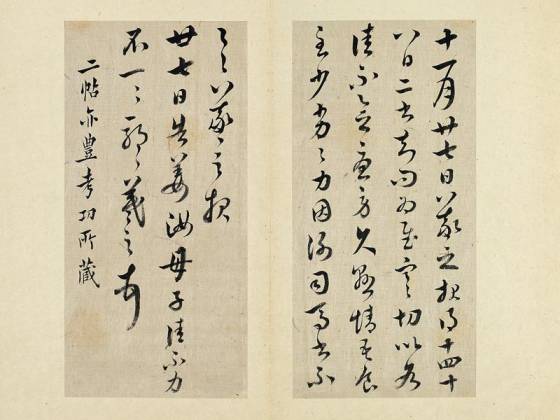 十一月廿七日羲之報得十四十
八日二書知問為慰寒切比各
佳不念憂勞久懸情吾食
至少劣劣力因謝司馬書不
一一羲之報
廿七日告姜汝母子佳不力
不一一耶耶羲之
二帖亦豐考功所藏